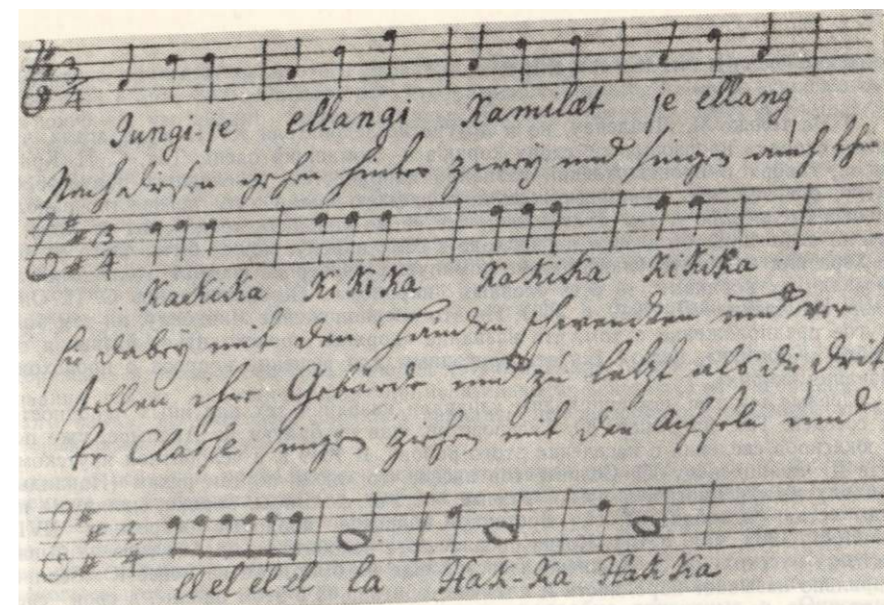 3/4
Jungi-je ellangi Kamilæt je ellang
Nach diesen gehen hinter zwey und singen auch
3/4
Kaekika KiKiKa KaKiKa KiKiKa
sie dabey mit den Händen schwencken und ver
stellen ihre Gebärde und zu letzt als die drit
te Classe singen ziehen mit den Achseln und
3/4
ll el el el la Hak-Ka HakKa